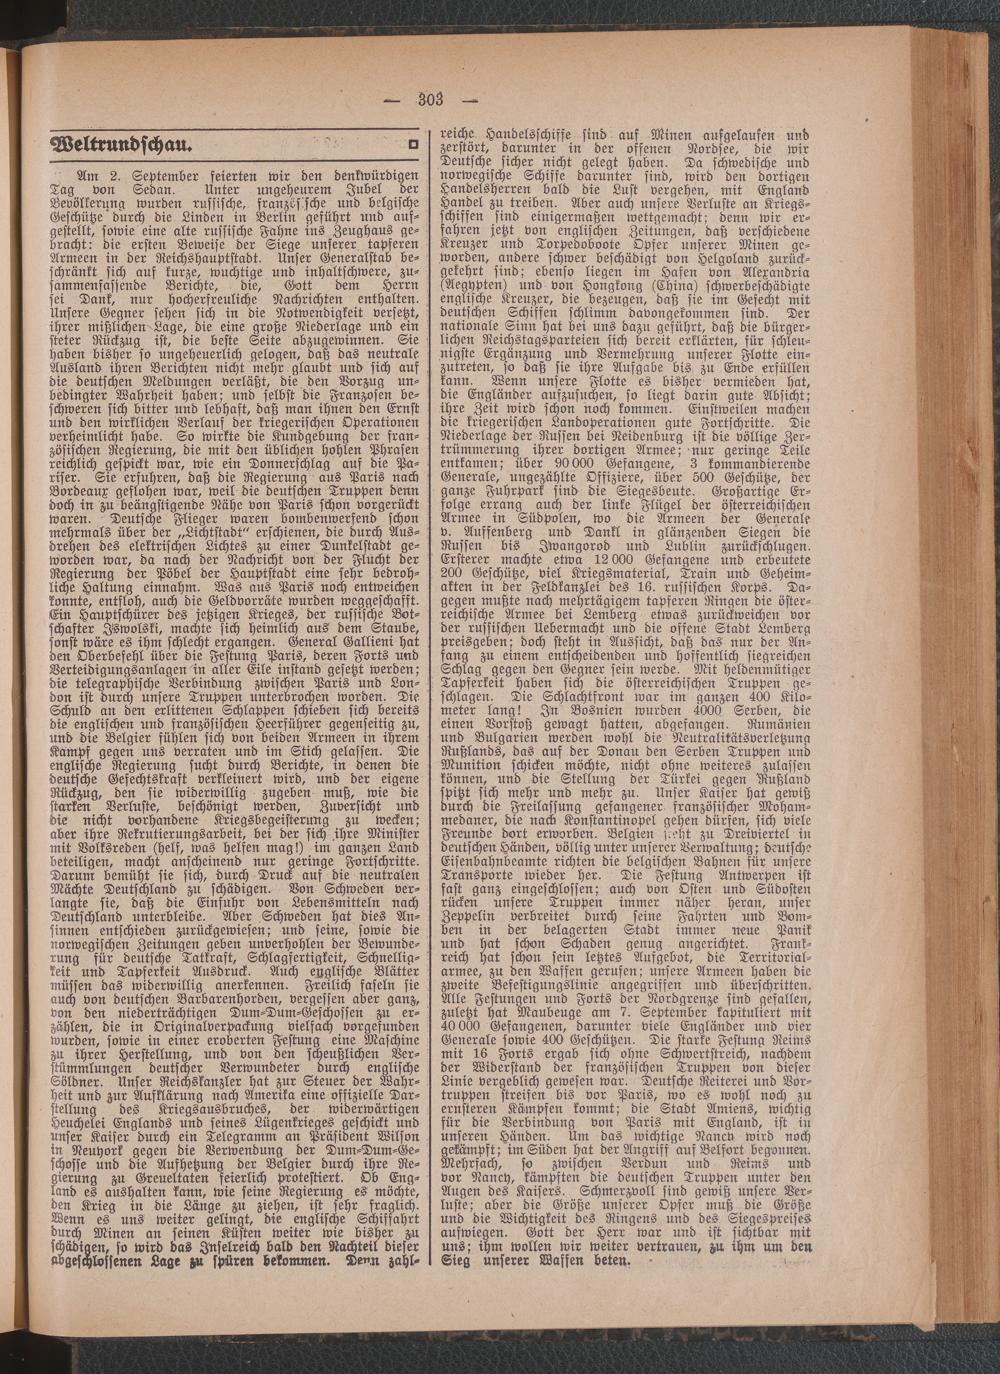 — 303 —
Weltrundschau.
Am 2. September feierten wir den denkwürdigen
Tag von Sedan. Unter ungeheurem Jubel der
Bevölkerung wurden russische, französische und belgische
Geschütze durch die Linden in Berlin geführt und auf-
gestellt, sowie eine alte russische Fahne ins Zeughaus ge-
bracht: die ersten Beweise der Siege unserer tapferen
Armeen in der Reichshauptstadt. Unser Generalstab be-
schränkt sich auf kurze, wuchtige und inhaltschwere, zu-
sammenfassende Berichte, die, Gott dem Herrn
sei Dank, nur hocherfreuliche Nachrichten enthalten.
Unsere Gegner sehen sich in die Notwendigkeit versetzt,
ihrer mißlichen Lage, die eine große Niederlage und ein
steter Rückzug ist, die beste Seite abzugewinnen. Sie
haben bisher so ungeheuerlich gelogen, daß das neutrale
Ausland ihren Berichten nicht mehr glaubt und sich auf
die deutschen Meldungen verläßt, die den Vorzug un-
bedingter Wahrheit haben; und selbst die Franzosen be-
schweren sich bitter und lebhaft, daß man ihnen den Ernst
und den wirklichen Verlauf der kriegerischen Operationen
verheimlicht habe. So wirkte die Kundgebung der fran-
zösischen Regierung, die mit den üblichen hohlen Phrasen
reichlich gespickt war, wie ein Donnerschlag auf die Pa-
riser. Sie erfuhren, daß die Regierung aus Paris nach
Bordeaux geflohen war, weil die deutschen Truppen denn
doch in zu beängstigende Nähe von Paris schon vorgerückt
waren. Deutsche Flieger waren bombenwerfend schon
mehrmals über der „Lichtstadt“ erschienen, die durch Aus-
drehen des elektrischen Lichtes zu einer Dunkelstadt ge-
worden war, da nach der Nachricht von der Flucht der
Regierung der Pöbel der Hauptstadt eine sehr bedroh-
liche Haltung einnahm. Was aus Paris noch entweichen
konnte, entfloh, auch die Geldvorräte wurden weggeschafft.
Ein Hauptschürer des jetzigen Krieges, der russische Bot-
schafter Iswolski, machte sich heimlich aus dem Staube,
sonst wäre es ihm schlecht ergangen. General Gallieni hat
den Oberbefehl über die Festung Paris, deren Forts und
Verteidigungsanlagen in aller Eile instand gesetzt werden;
die telegraphische Verbindung zwischen Paris und Lon-
don ist durch unsere Truppen unterbrochen worden. Die
Schuld an den erlittenen Schlappen schieben sich bereits
die englischen und französischen Heerführer gegenseitig zu,
und die Belgier fühlen sich von beiden Armeen in ihrem
Kampf gegen uns verraten und im Stich gelassen. Die
englische Regierung sucht durch Berichte, in denen die
deutsche Gefechtskraft verkleinert wird, und der eigene
Rückzug, den sie widerwillig zugeben muß, wie die
starken Verluste, beschönigt werden, Zuversicht und
die nicht vorhandene Kriegsbegeisterung zu wecken;
aber ihre Rekrutierungsarbeit, bei der sich ihre Minister
mit Volksreden (helf, was helfen mag!) im ganzen Land
beteiligen, macht anscheinend nur geringe Fortschritte.
Darum bemüht sie sich, durch Druck auf die neutralen
Mächte Deutschland zu schädigen. Von Schweden ver-
langte sie, daß die Einfuhr von Lebensmitteln nach
Deutschland unterbleibe. Aber Schweden hat dies An-
sinnen entschieden zurückgewiesen; und seine, sowie die
norwegischen Zeitungen geben unverhohlen der Bewunde-
rung für deutsche Tatkraft, Schlagfertigkeit, Schnellig-
keit und Tapferkeit Ausdruck. Auch englische Blätter
müssen das widerwillig anerkennen. Freilich faseln sie
auch von deutschen Barbarenhorden, vergessen aber ganz,
von den niederträchtigen Dum-Dum-Geschossen zu er-
zählen, die in Originalverpackung vielfach vorgefunden
wurden, sowie in einer eroberten Festung eine Maschine
zu ihrer Herstellung, und von den scheußlichen Ver-
stümmlungen deutscher Verwundeter durch englische
Söldner. Unser Reichskanzler hat zur Steuer der Wahr-
heit und zur Aufklärung nach Amerika eine offizielle Dar-
stellung des Kriegsausbruches, der widerwärtigen
Heuchelei Englands und seines Lügenkrieges geschickt und
unser Kaiser durch ein Telegramm an Präsident Wilson
in Neuyork gegen die Verwendung der Dum-Dum-Ge-
schosse und die Aufhetzung der Belgier durch ihre Re-
gierung zu Greueltaten feierlich protestiert. Ob Eng-
land es aushalten kann, wie seine Regierung es möchte,
den Krieg in die Länge zu ziehen, ist sehr fraglich.
Wenn es uns weiter gelingt, die englische Schiffahrt
durch Minen an seinen Küsten weiter wie bisher zu
schädigen, so wird das Inselreich bald den Nachteil dieser
abgeschlossenen Lage zu spüren bekommen. Denn zahl-
reiche Handelsschiffe sind auf Minen aufgelaufen und
zerstört, darunter in der offenen Nordsee, die wir
Deutsche sicher nicht gelegt haben. Da schwedische und
norwegische Schiffe darunter sind, wird den dortigen
Handelsherren bald die Lust vergehen, mit England
Handel zu treiben. Aber auch unsere Verluste an Kriegs-
schiffen sind einigermaßen wettgemacht; denn wir er-
fahren jetzt von englischen Zeitungen, daß verschiedene
Kreuzer und Torpedoboote Opfer unserer Minen ge-
worden, andere schwer beschädigt von Helgoland zurück-
gekehrt sind; ebenso liegen im Hafen von Alexandria
(Aegypten) und von Hongkong (China) schwerbeschädigte
englische Kreuzer, die bezeugen, daß sie im Gefecht mit
deutschen Schiffen schlimm davongekommen sind. Der
nationale Sinn hat bei uns dazu geführt, daß die bürger-
lichen Reichstagsparteien sich bereit erklärten, für schleu-
nigste Ergänzung und Vermehrung unserer Flotte ein-
zutreten, so daß sie ihre Aufgabe bis zu Ende erfüllen
kann. Wenn unsere Flotte es bisher vermieden hat,
die Engländer aufzusuchen, so liegt darin gute Absicht;
ihre Zeit wird schon noch kommen. Einstweilen machen
die kriegerischen Landoperationen gute Fortschritte. Die
Niederlage der Russen bei Neidenburg ist die völlige Zer-
trümmerung ihrer dortigen Armee; nur geringe Teile
entkamen; über 90 000 Gefangene, 3 kommandierende
Generale, ungezählte Offiziere, über 500 Geschütze, der
ganze Fuhrpark sind die Siegesbeute. Großartige Er-
folge errang auch der linke Flügel der österreichischen
Armee in Südpolen, wo die Armeen der Generale
v. Auffenberg und Dankl in glänzenden Siegen die
Russen bis Iwangorod und Lublin zurückschlugen.
Ersterer machte etwa 12 000 Gefangene und erbeutete
200 Geschütze, viel Kriegsmaterial, Train und Geheim-
akten in der Feldkanzlei des 16. russischen Korps. Da-
gegen mußte nach mehrtägigem tapferen Ringen die öster-
reichische Armee bei Lemberg etwas zurückweichen vor
der russischen Uebermacht und die offene Stadt Lemberg
preisgeben; doch steht in Aussicht, daß das nur der An-
fang zu einem entscheidenden und hoffentlich siegreichen
Schlag gegen den Gegner sein werde. Mit heldenmütiger
Tapferkeit haben sich die österreichischen Truppen ge-
schlagen. Die Schlachtfront war im ganzen 400 Kilo-
meter lang! In Bosnien wurden 4000 Serben, die
einen Vorstoß gewagt hatten, abgefangen. Rumänien
und Bulgarien werden wohl die Neutralitätsverletzung
Rußlands, das auf der Donau den Serben Truppen und
Munition schicken möchte, nicht ohne weiteres zulassen
können, und die Stellung der Türkei gegen Rußland
spitzt sich mehr und mehr zu. Unser Kaiser hat gewiß
durch die Freilassung gefangener französischer Moham-
medaner, die nach Konstantinopel gehen dürfen, sich viele
Freunde dort erworben. Belgien steht zu Dreiviertel in
deutschen Händen, völlig unter unserer Verwaltung; deutsche
Eisenbahnbeamte richten die belgischen Bahnen für unsere
Transporte wieder her. Die Festung Antwerpen ist
fast ganz eingeschlossen; auch von Osten und Südosten
rücken unsere Truppen immer näher heran, unser
Zeppelin verbreitet durch seine Fahrten und Bom-
ben in der belagerten Stadt immer neue Panik
und hat schon Schaden genug angerichtet. Frank-
reich hat schon sein letztes Aufgebot, die Territorial-
armee, zu den Waffen gerufen; unsere Armeen haben die
zweite Befestigungslinie angegriffen und überschritten.
Alle Festungen und Forts der Nordgrenze sind gefallen,
zuletzt hat Maubeuge am 7. September kapituliert mit
40 000 Gefangenen, darunter viele Engländer und vier
Generale sowie 400 Geschützen. Die starke Festung Reims
mit 16 Forts ergab sich ohne Schwertstreich, nachdem
der Widerstand der französischen Truppen von dieser
Linie vergeblich gewesen war. Deutsche Reiterei und Vor-
truppen streifen bis vor Paris, wo es wohl noch zu
ernsteren Kämpfen kommt; die Stadt Amiens, wichtig
für die Verbindung von Paris mit England, ist in
unseren Händen. Um das wichtige Nancy wird noch
gekämpft; im Süden hat der Angriff auf Belfort begonnen.
Mehrfach, so zwischen Verdun und Reims und
vor Nancy, kämpften die deutschen Truppen unter den
Augen des Kaisers. Schmerzvoll sind gewiß unsere Ver-
luste; aber die Größe unserer Opfer muß die Größe
und die Wichtigkeit des Ringens und des Siegespreises
aufwiegen. Gott der Herr war und ist sichtbar mit
uns; ihm wollen wir weiter vertrauen, zu ihm um den
Sieg unserer Waffen beten.